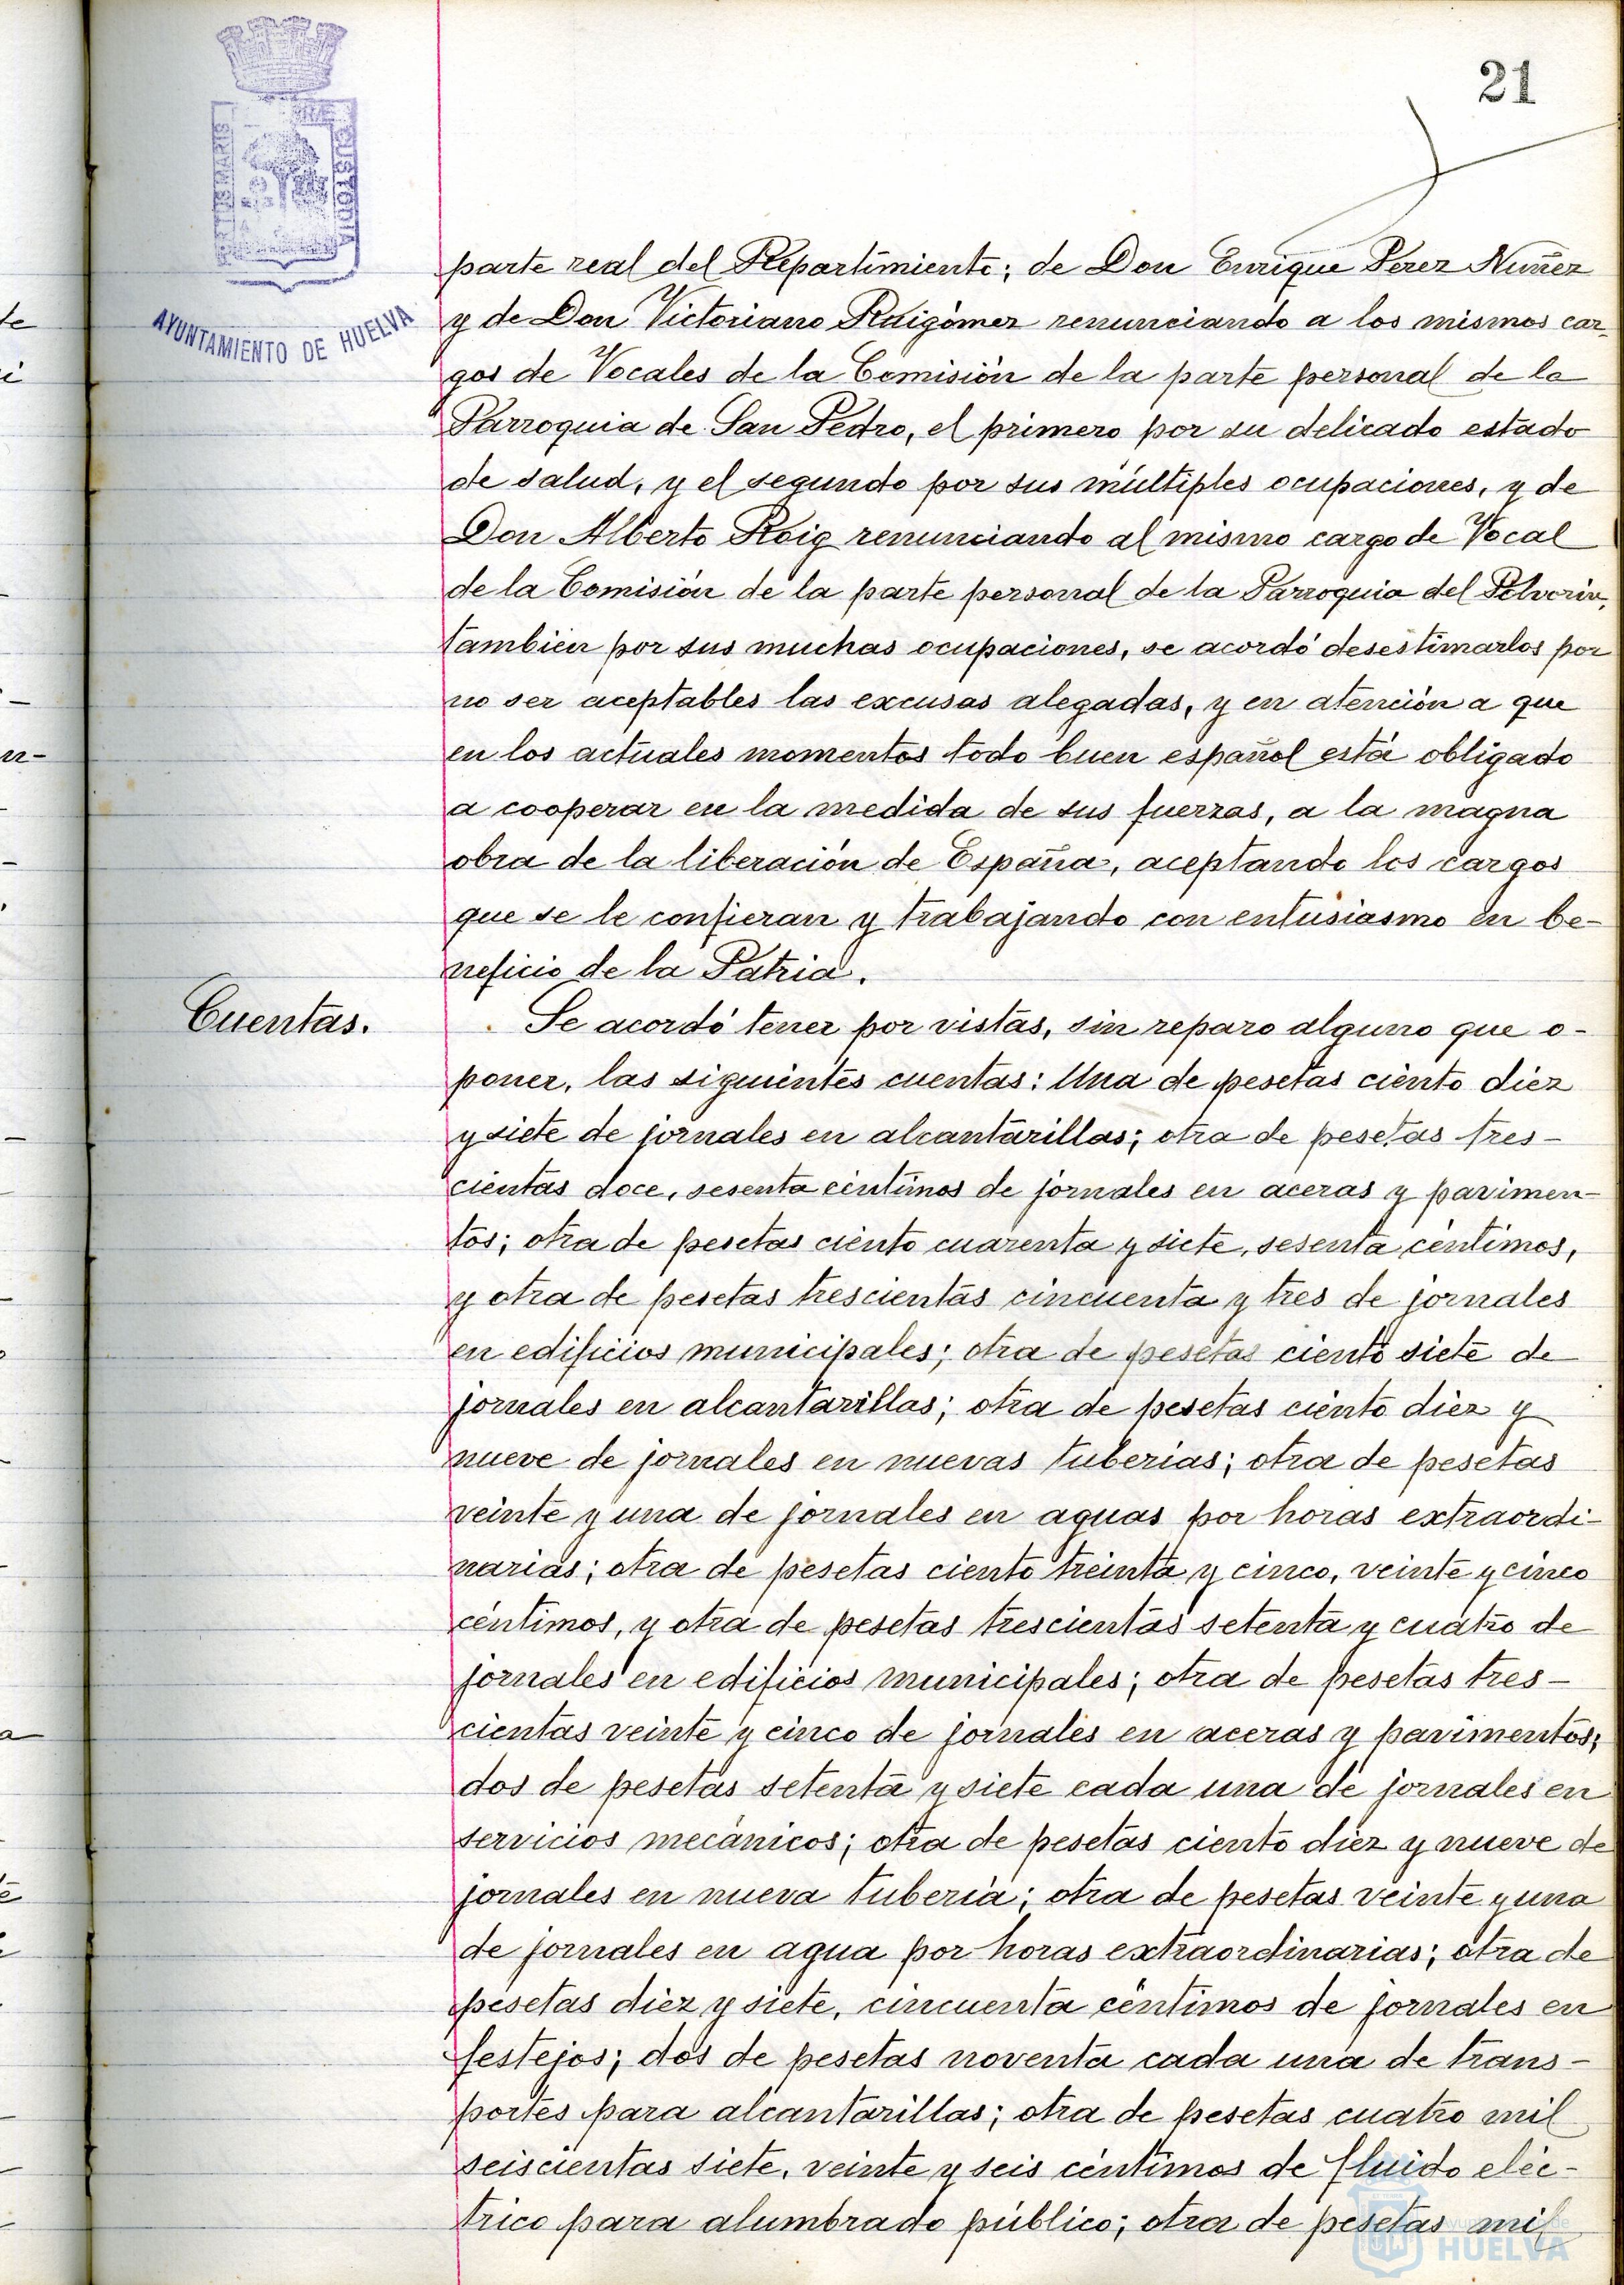 21
PORTUS MARIS
ET TERRE
CUSTODIA
AYUNTAMIENTO DE HUELVA
parte real del Repartimiento; de Don Enrique Perez Nuñez
y de Don Victoriano Ruigómez renunciando a los mismos car-
gos de Vocales de la Comisión de la parte personal de la
Parroquia de San Pedro, el primero por su delicado estado
de salud, y el segundo por sus múltiples ocupaciones, y de
Don Alberto Roig renunciando al mismo cargo de Vocal
de la Comisión de la parte personal de la Parroquia del Polvorin,
tambien por sus muchas ocupaciones, se acordó desestimarlos por
no ser aceptables las excusas alegadas, y en atención a que
en los actuales momentos todo buen español está obligado
a cooperar en la medida de sus fuerzas, a la magna
obra de la liberación de España, aceptando los cargos
que se le confieran y trabajando con entusiasmo en be-
neficio de la Patria.
Cuentas.
Se acordó tener por vistas, sin reparo alguno que o-
poner, las siguientes cuentas: Una de pesetas ciento diez
y siete de jornales en alcantarillas; otra de pesetas tres-
cientas doce, sesenta céntimos de jornales en aceras y pavimen-
tos; otra de pesetas ciento cuarenta y siete, sesenta céntimos,
y otra de pesetas trescientas cincuenta y tres de jornales
en edificios municipales; otra de pesetas ciento siete de
jornales en alcantarillas; otra de pesetas ciento diez y
nueve de jornales en nuevas tuberias; otra de pesetas
veinte y una de jornales en aguas por horas extraordi-
narias; otra de pesetas ciento treinta y cinco, veinte y cinco
céntimos, y otra de pesetas trescientas setenta y cuatro de
jornales en edificios municipales; otra de pesetas tres-
cientas veinte y cinco de jornales en aceras y pavimentos;
dos de pesetas setenta y siete cada una de jornales en
servicios mecánicos; otra de pesetas ciento diez y nueve de
jornales en nueva tuberia; otra de pesetas veinte y una
de jornales en agua por horas extraordinarias; otra de
pesetas diez y siete, cincuenta céntimos de jornales en
festejos; dos de pesetas noventa cada una de trans-
portes para alcantarillas; otra de pesetas cuatro mil
seiscientas siete, veinte y seis céntimos de fluido eléc-
trico para alumbrado público; otra de pesetas mil
Ayuntamiento de
HUELVA